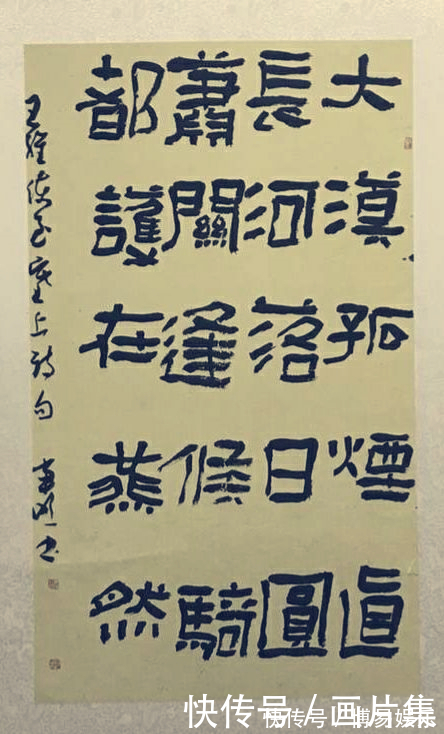 大漠孤煙直
長河落日圓
蕭關逢候騎
都護在燕然
王維使至塞上詩句
书
快传号 / 画片集
快传号